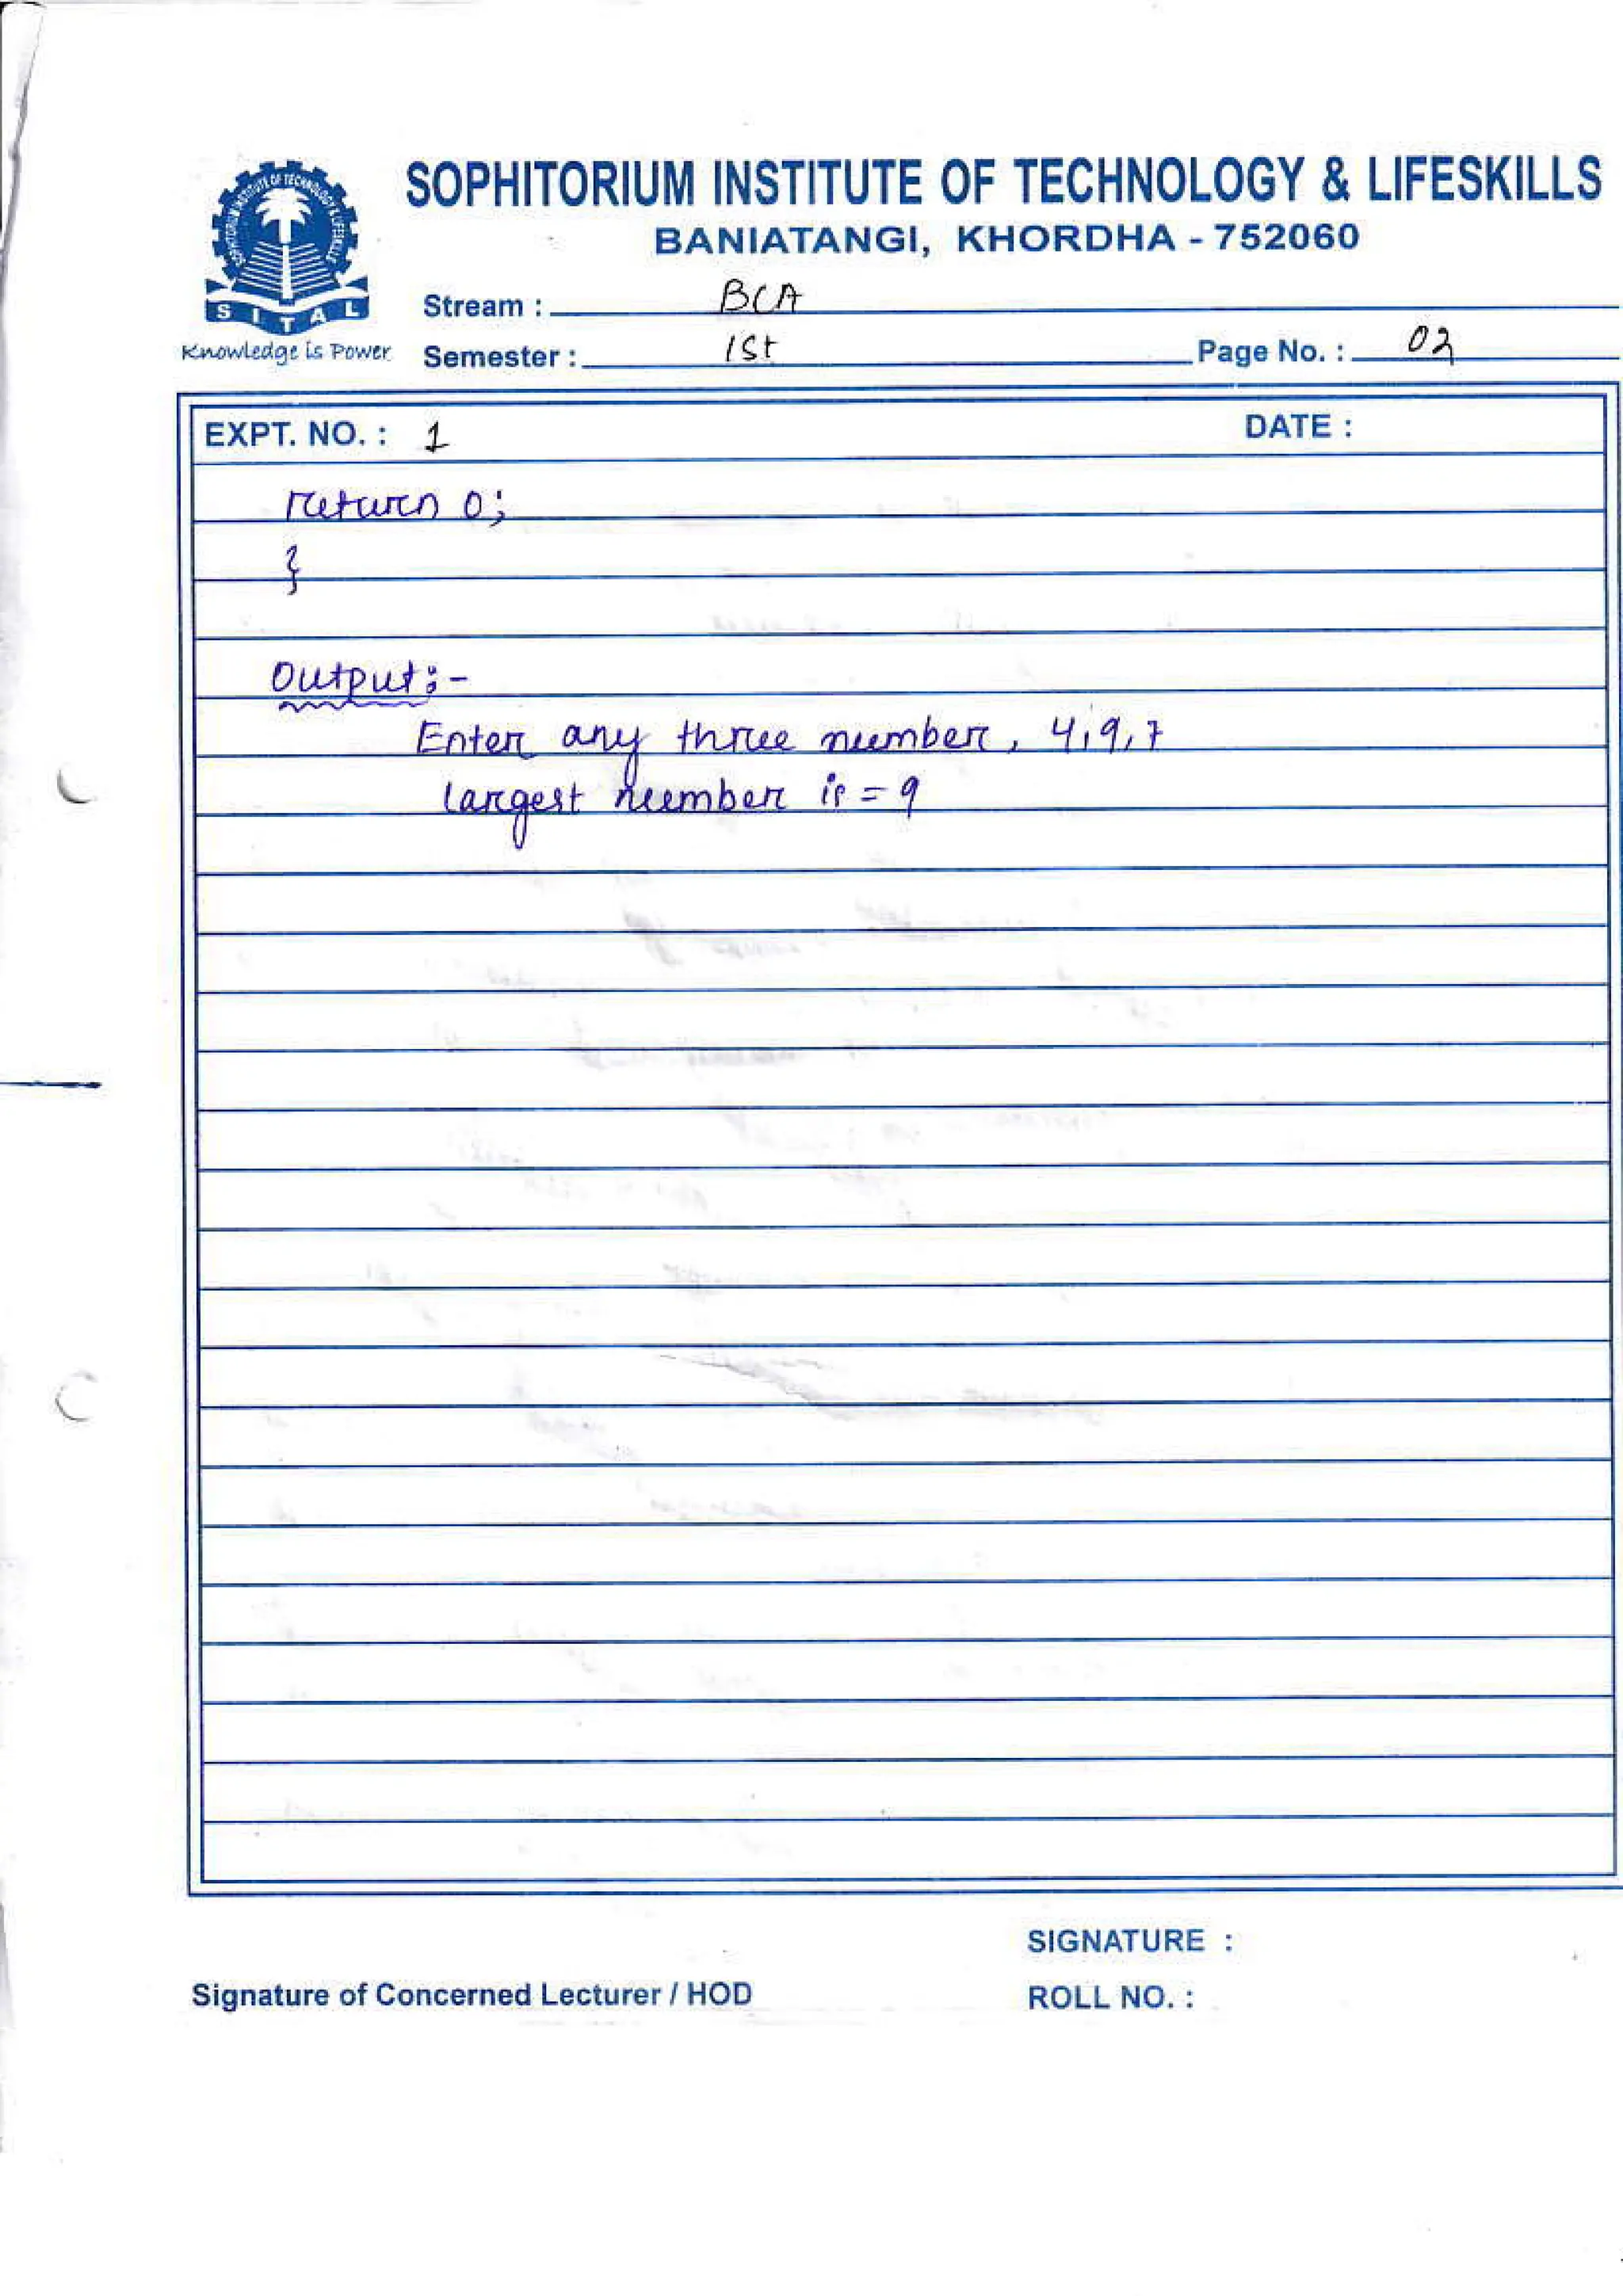 SOPHITORIUM INSTITUTE OF TECHNOLOGY & LIFESKILLS
BANIATANGI, KHORDHA - 752060
SOPHITORIUM INSTITUTE OF TECHNOLOGY & LIFESKILLS
SITAL
Knowledge is Power
Stream : BCA
Semester : 1St Page No. : 02
EXPT. NO. : 1 DATE :
return 0;
}
Output :-
Enter any three number, 4,9,7
largest number is = 9
SIGNATURE :
Signature of Concerned Lecturer / HOD ROLL NO. :